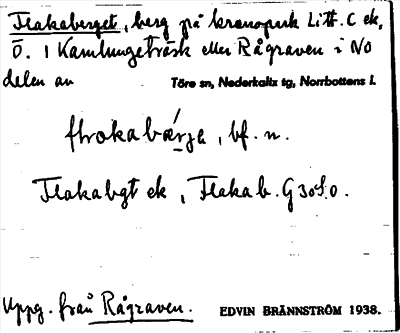 Flakaberget, berg på kronopark Litt. C ek,
Ö. i Kamlungeträsk eller Rågraven i NO
delen av Töre sn, Nederkalix tg, Norrbottens l.
flrokabærja, bf. n.
Flakabgt ek, Flakab. G 30 S.o.
Uppg. från Rågraven. EDVIN BRÄNNSTRÖM 1938.